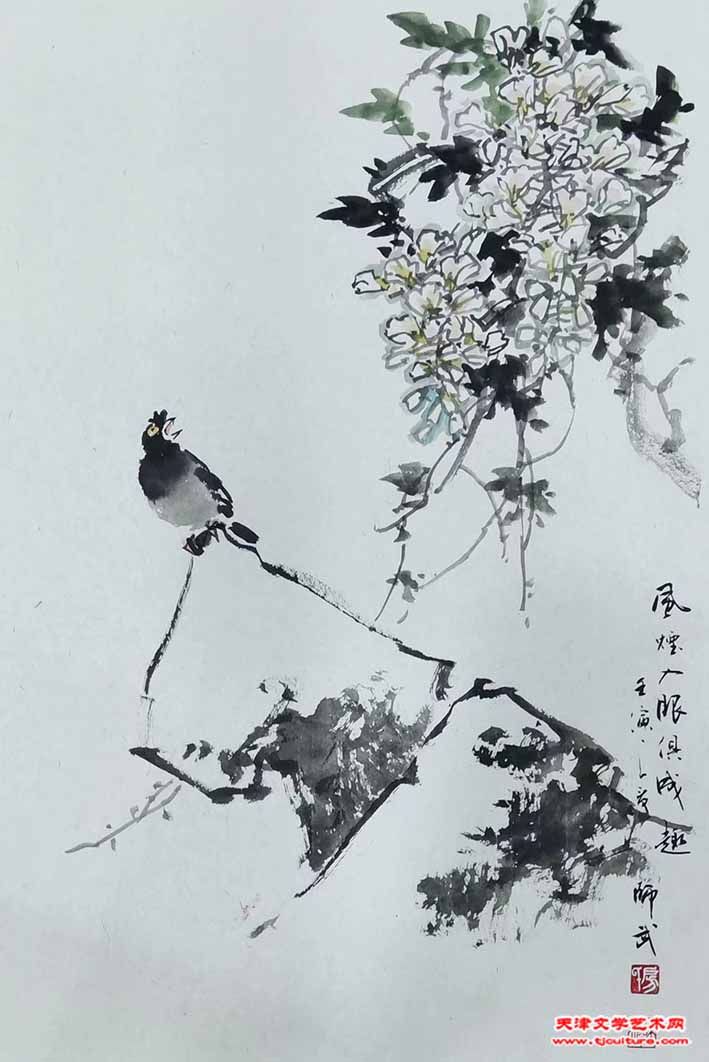 風煙入眼俱成趣
壬寅
師武
天津文学艺术网
www.tjculture.com